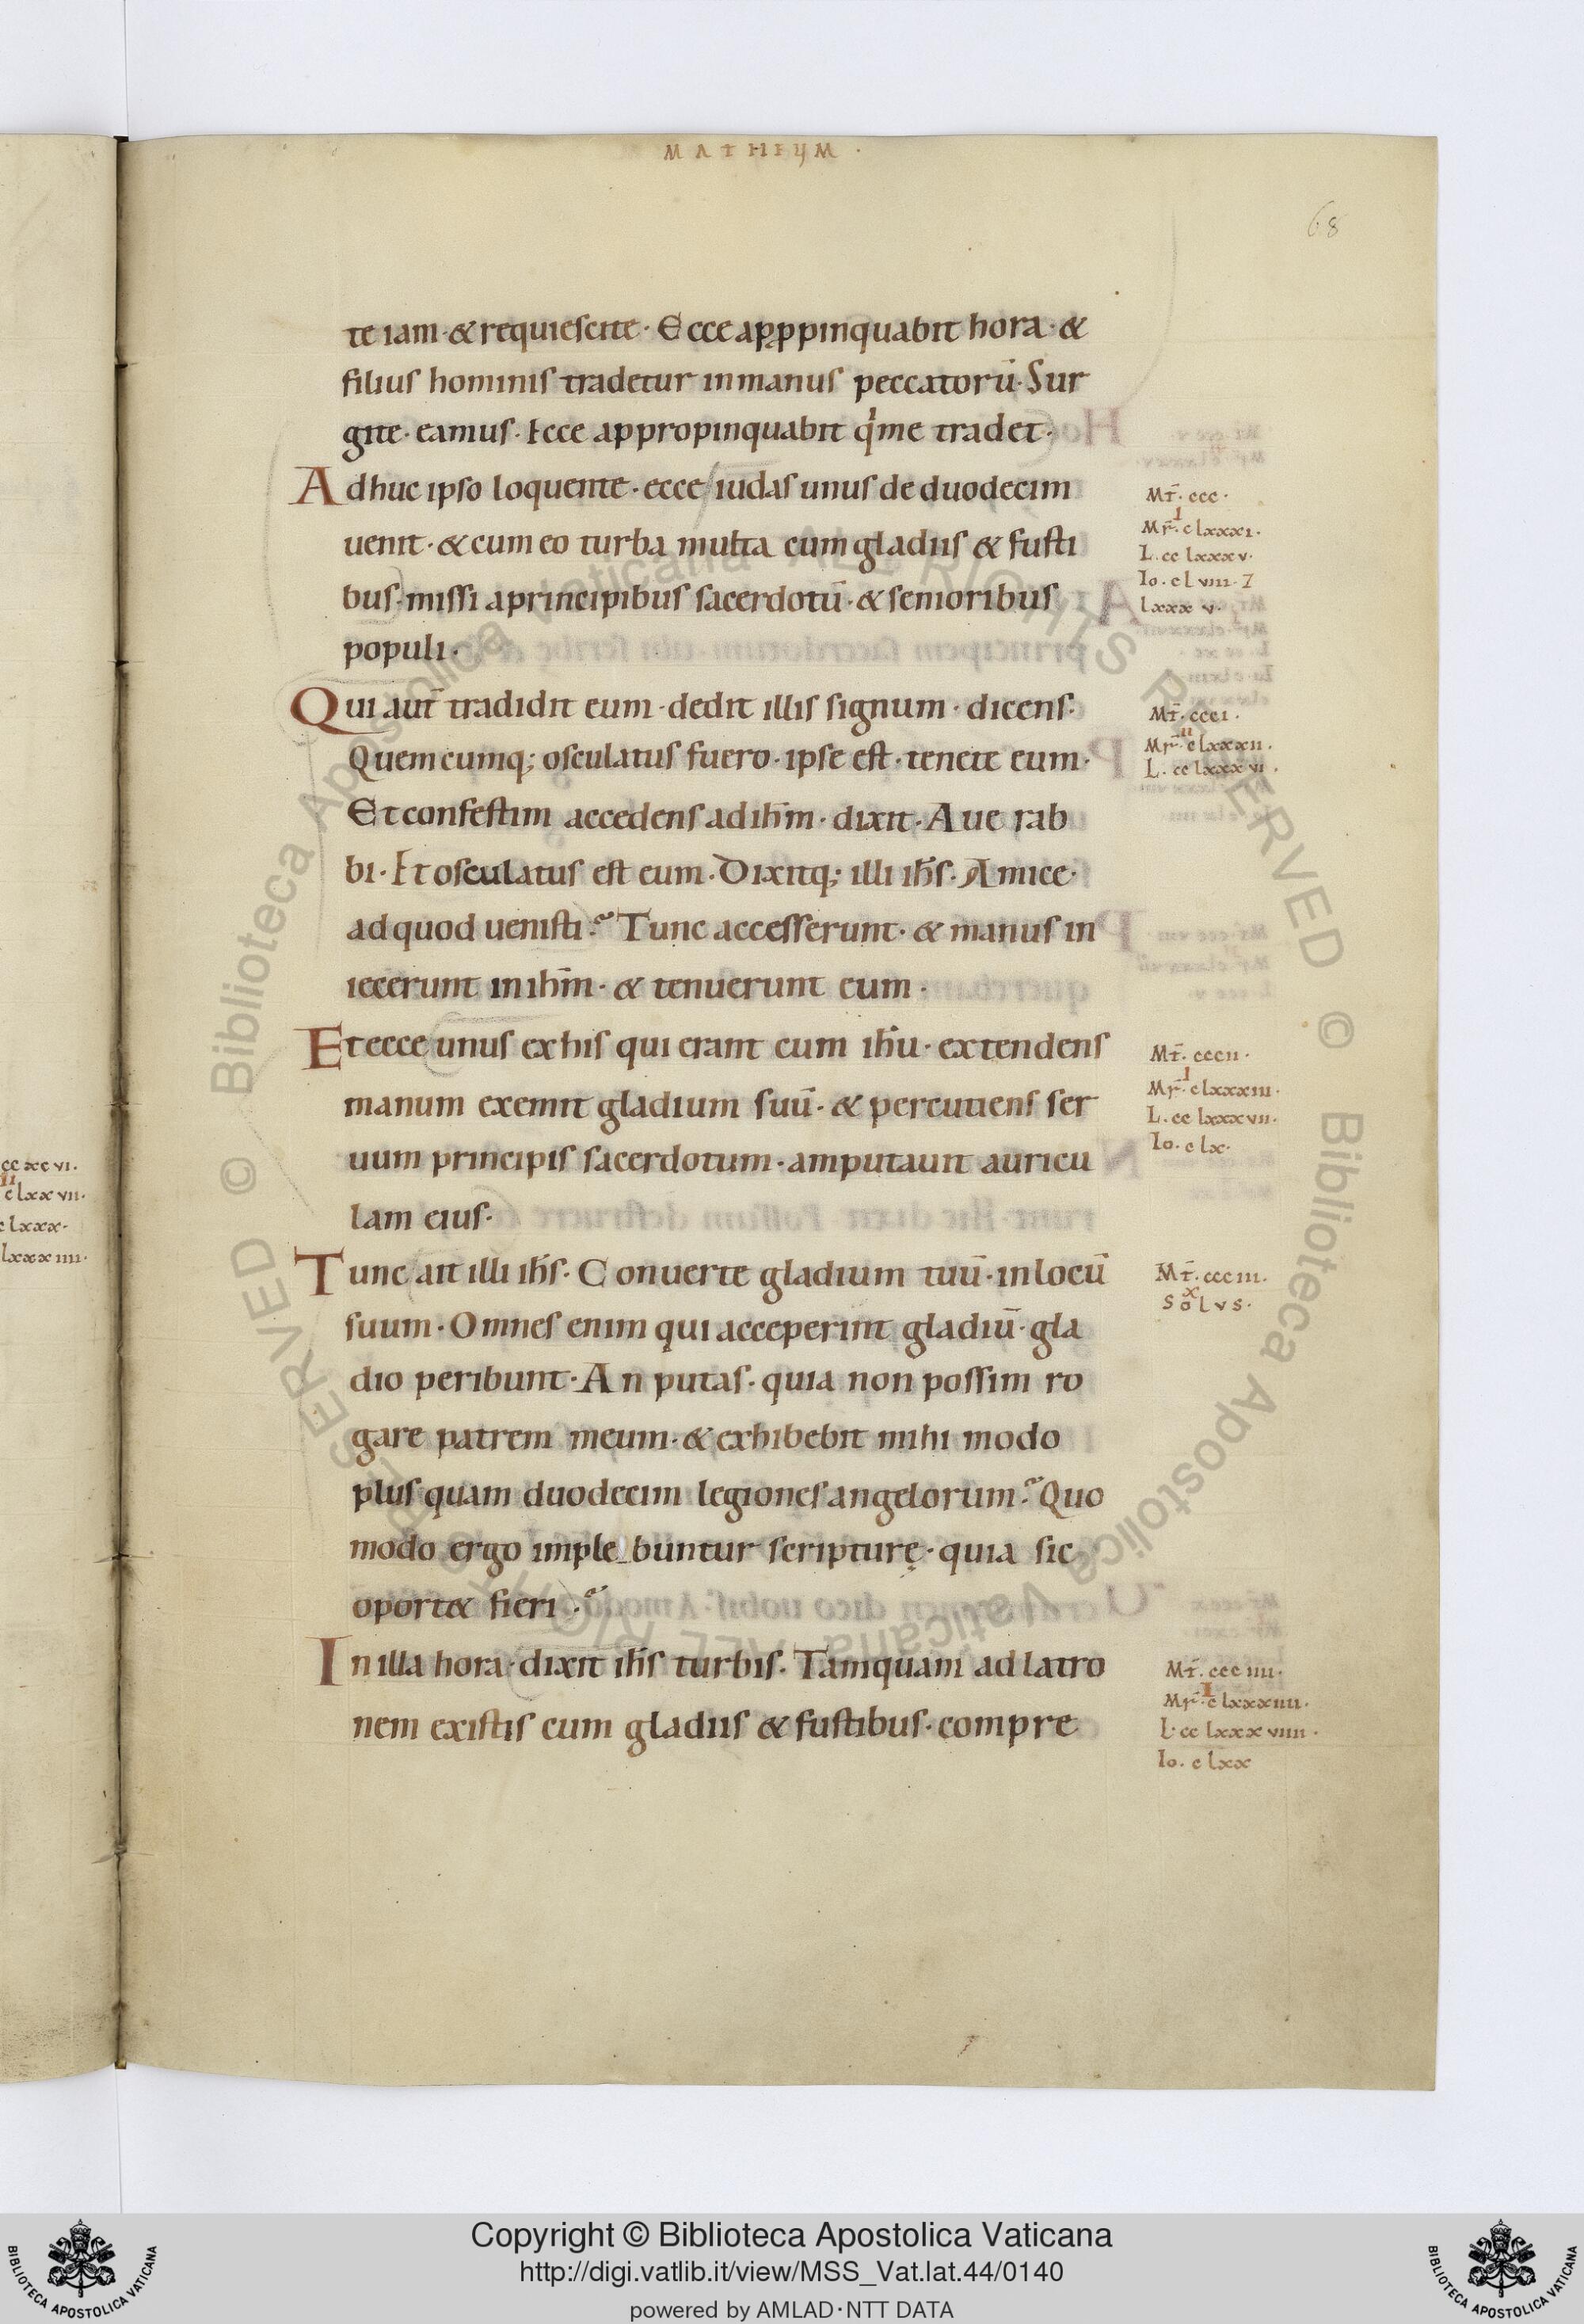 MATHEYM ·
68
te iam · & requiescite · Ecce apꝓpinquabit hora · &
filius hominis tradetur inmanus peccatorū · Sur
gite · eamus · Ecce appropinquabit qͥ me tradet ·
Adhuc ipso loquente · ecce iudas unus de duodecim
uenit · & cum eo turba multa cum gladiis & fusti
bus · missi a principibus sacerdotū · & senioribus
populi ·
Qui aut̄ tradidit eum · dedit illis signum · dicens ·
Quemcumq; osculatus fuero · ipse est · tenete eum ·
Et confestim accedens ad ih̄m · dixit · Aue rab
bi · Et osculatus est eum · Dixitq; illi ih̄s · Amice ·
ad quod uenisti? Tunc accesserunt · & manus in
iecerunt in ih̄m · & tenuerunt eum ·
Et ecce unus ex his qui erant cum ih̄u · extendens
manum exemit gladium suū · & percutiens ser
uum principis sacerdotum · amputauit auricu
lam eius ·
Tunc ait illi ih̄s · Conuerte gladium tuū · in locū
suum · Omnes enim qui acceperint gladiū · gla
dio peribunt · An putas · quia non possim ro
gare patrem meum · & exhibebit mihi modo
plus quam duodecim legiones angelorum? Quo
modo ergo imple_buntur scripturę · quia sic
oport& fieri?
In illa hora · dixit ih̄s turbis · Tamquam ad latro
nem existis cum gladiis & fustibus · compre
Mt̄ · ccc ·
I
Mr̄ · clxxxxi ·
L · cclxxxv ·
Io · clviii · 7
lxxxv ·
Mt̄ · ccci ·
II
Mr̄ · clxxxxii ·
L · cclxxxvi ·
Mt̄ · cccii ·
I
Mr̄ · clxxxiii ·
L · cclxxxvii ·
Io · clx ·
Mt̄ · ccciii ·
x
SOLVS ·
Mt̄ · ccciiii ·
I
Mr̄ · clxxxiiii ·
L · cclxxxviiii ·
Io · clxx
ccxcvi ·
II
clxxvii ·
clxxx ·
lxxxiiii ·
© Biblioteca Apostolica Vaticana ALL RIGHTS RESERVED
Copyright © Biblioteca Apostolica Vaticana
http://digi.vatlib.it/view/MSS_Vat.lat.44/0140
powered by AMLAD·NTT DATA
BIBLIOTECA APOSTOLICA VATICANA
BIBLIOTECA APOSTOLICA VATICANA